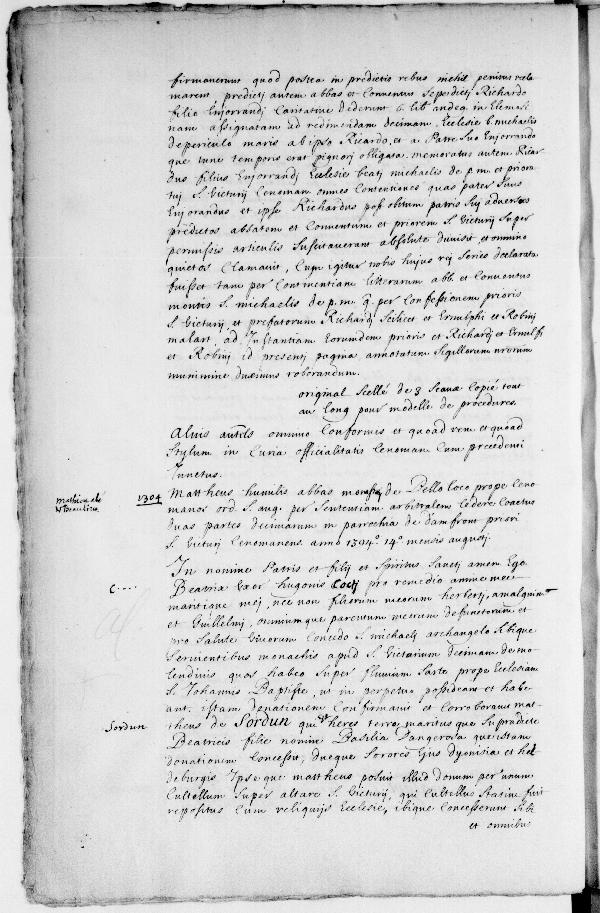 firmaverunt quod postea in predictis rebus nichil penitus recla
marent predictj autem abbas et Conventus sepedictj Richardo
filio Enjorrandj Caritative dederunt 6 lib. andea. in Elemosi
nam assignatam ad redimendam decimam Ecclesie b. michaelis
de periculo maris ab ipso Ricardo, et a Patre suo Enjorrando
que tunc temporis erat pignorj obligata. memoratus autem Ricar
dus filius Enjorrandj Ecclesie beatj michaelis de p. m. et priorj
S. Victurij Cenoman. omnes Contentiones quas pater suus
Enjorandus et ipse Richardus post obitum patris suj adversus
predictos abbatem et Conventum et priorem S. Victurij super
permissis articulis suscitaverant absolute dimisit, et omnino
quietos Clamavit, Cum igitur nobis hujus rej series declarata
fuisset tam per Continentiam litterarum abb. et Conventus
montis S. michaelis de p. m. q. per Confessionem prioris
S. Victurij et prefatorum Richardj scilicet et Ernulphi et Robinj
malart, ad instantiam Eorumdem prioris et Richardj et Ernulfi
et Robinj id presentj pagina annotatum sigillorum nrorum
munimine duximus roborandum.
original scellé de 3 sceaux copié tout
au long pour modelle de procedures.
Aluis omnino Conformis et quoad rem et quoad
stylum in Curia officialitatis Cenoman. Cum precedenti
Junctus.
mathieu abé
de Beaulieu
1304
Mattheus humilis abbas de Bello loco prope Ceno
manos ord. S. aug. per sententiam arbitralem Cedere Coactus
duas partes decimarum in parrochia de damfront priori
S. Victurj Cenomanens. anno 1304.° 14.° mensis augustj.
In nomine Patris et filij et spiritus sanctj amen Ego
C....
Beatrix Uxor hugonis Coctj pro remedio anime mee
maritique mej, nec non filiorum meorum herbertj, amalguini
et Guillelmj, omniumque parentum meorum defunctorum et
pro salute vivorum Concedo S. michaelj archangelo sibique
servientibus monachis apud S. Victurium decimam de mo
lendinis quos habeo super fluvium sarte prope Ecclesiam
S. Johannis Baptiste, ut in perpetuo possideant et habe
ant. istam donationem Confirmavit et Corroboravit mat
Sordun
theus de Sordun qui heres terre, maritus que supradicte
Beatricis filie nomine Basilia Dangerosa que istam
donationem Concessit, dueque sorores Ejus dyonisia et hil
deburgis Ipse que mattheus posuit illud donum per unum
Cultellum super altare S. Victurij, qui Cultellus statim fuit
repositus Cum reliquijs Ecclesie, ibique Concesserunt sibi
et omnibus